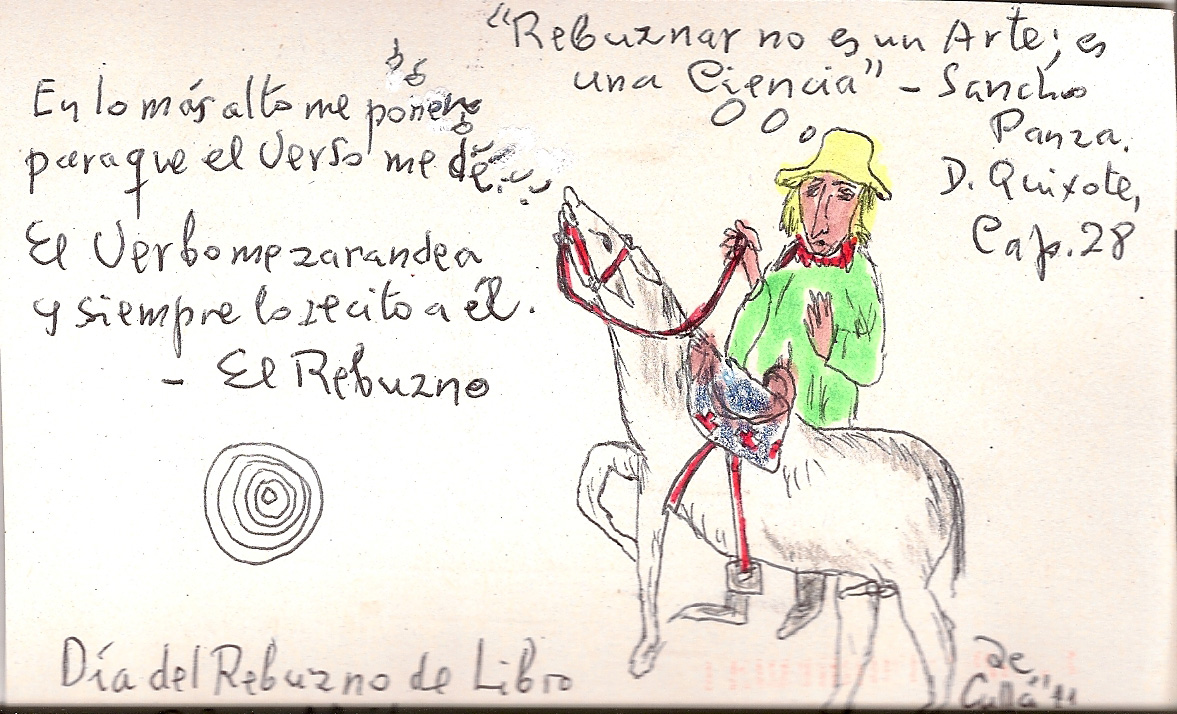 "Rebuznar no es un Arte; es
una Ciencia" - Sancho
Panza.
D. Quixote,
Cap. 28
En lo más alto me ponen
para que el Verso me dé.
El Verbo me zarandea
y siempre lo recito a él.
- El Rebuzno
Día del Rebuzno de Libro
de
Cullá "11